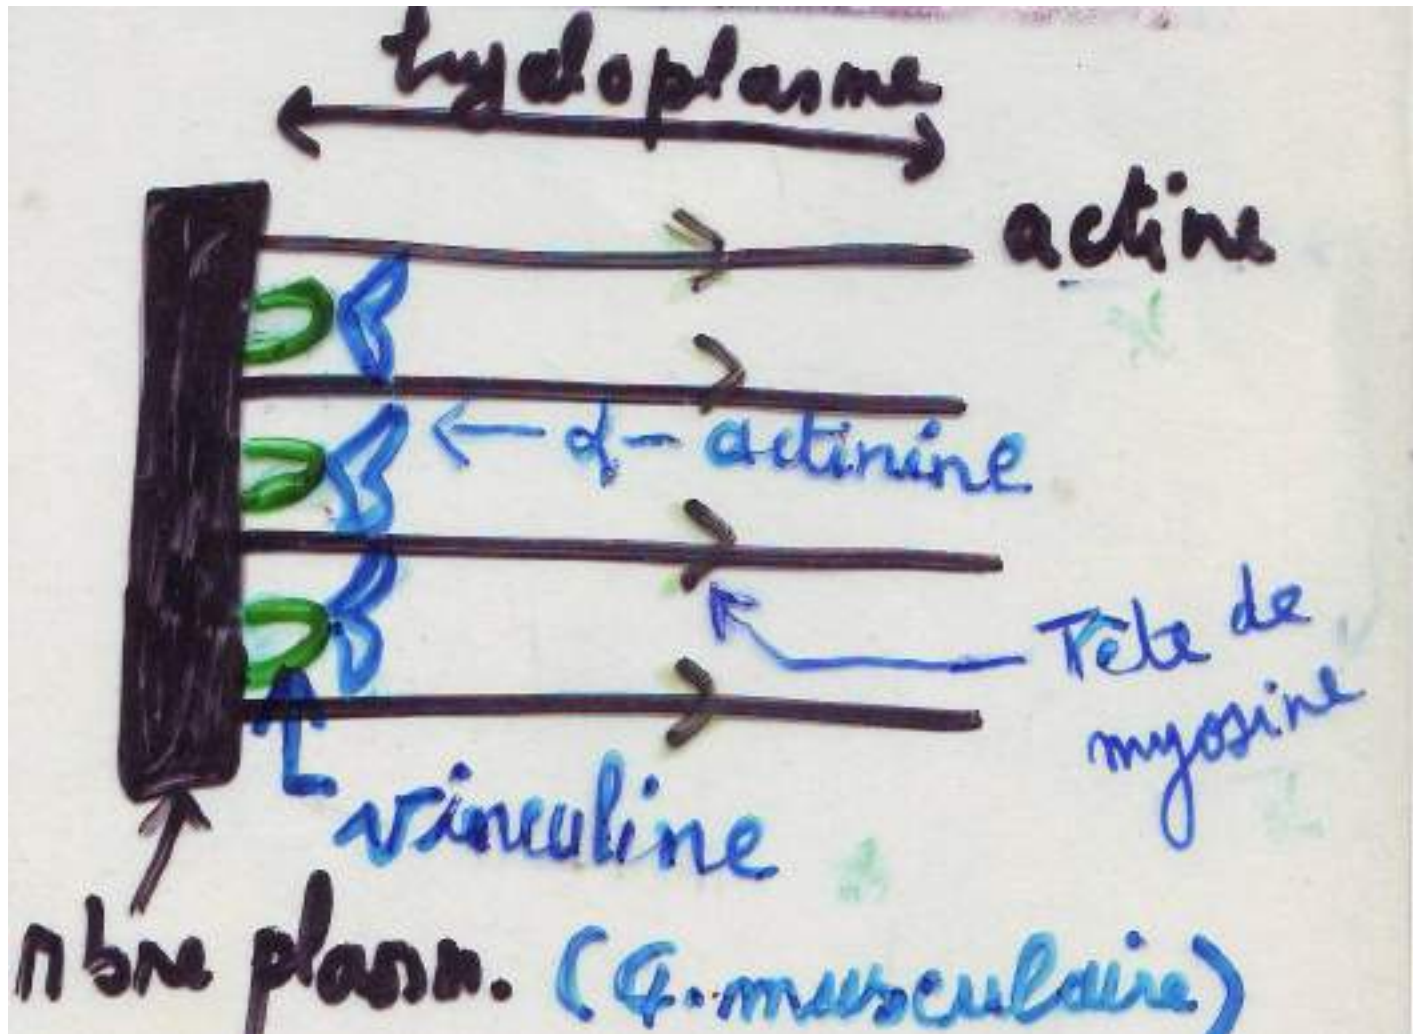 hyaloplasme
actine
α- actinine
Tête de
myosine
vinculine
mbne plasm. (C. musculaire)